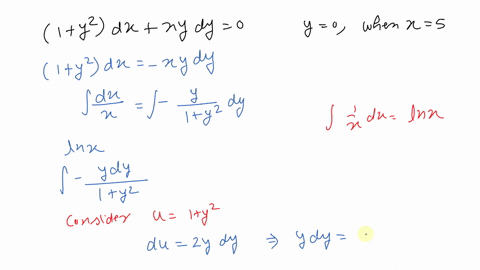 (1+y²) dx + xy dy = 0    y=0, when x=5
(1+y²) dx = -xy dy
∫ dx/x = ∫ - y/(1+y²) dy
∫ 1/x dx = lnx
lnx
∫ - ydy/(1+y²)
Consider u = 1+y²
du = 2y dy ⇒ ydy =